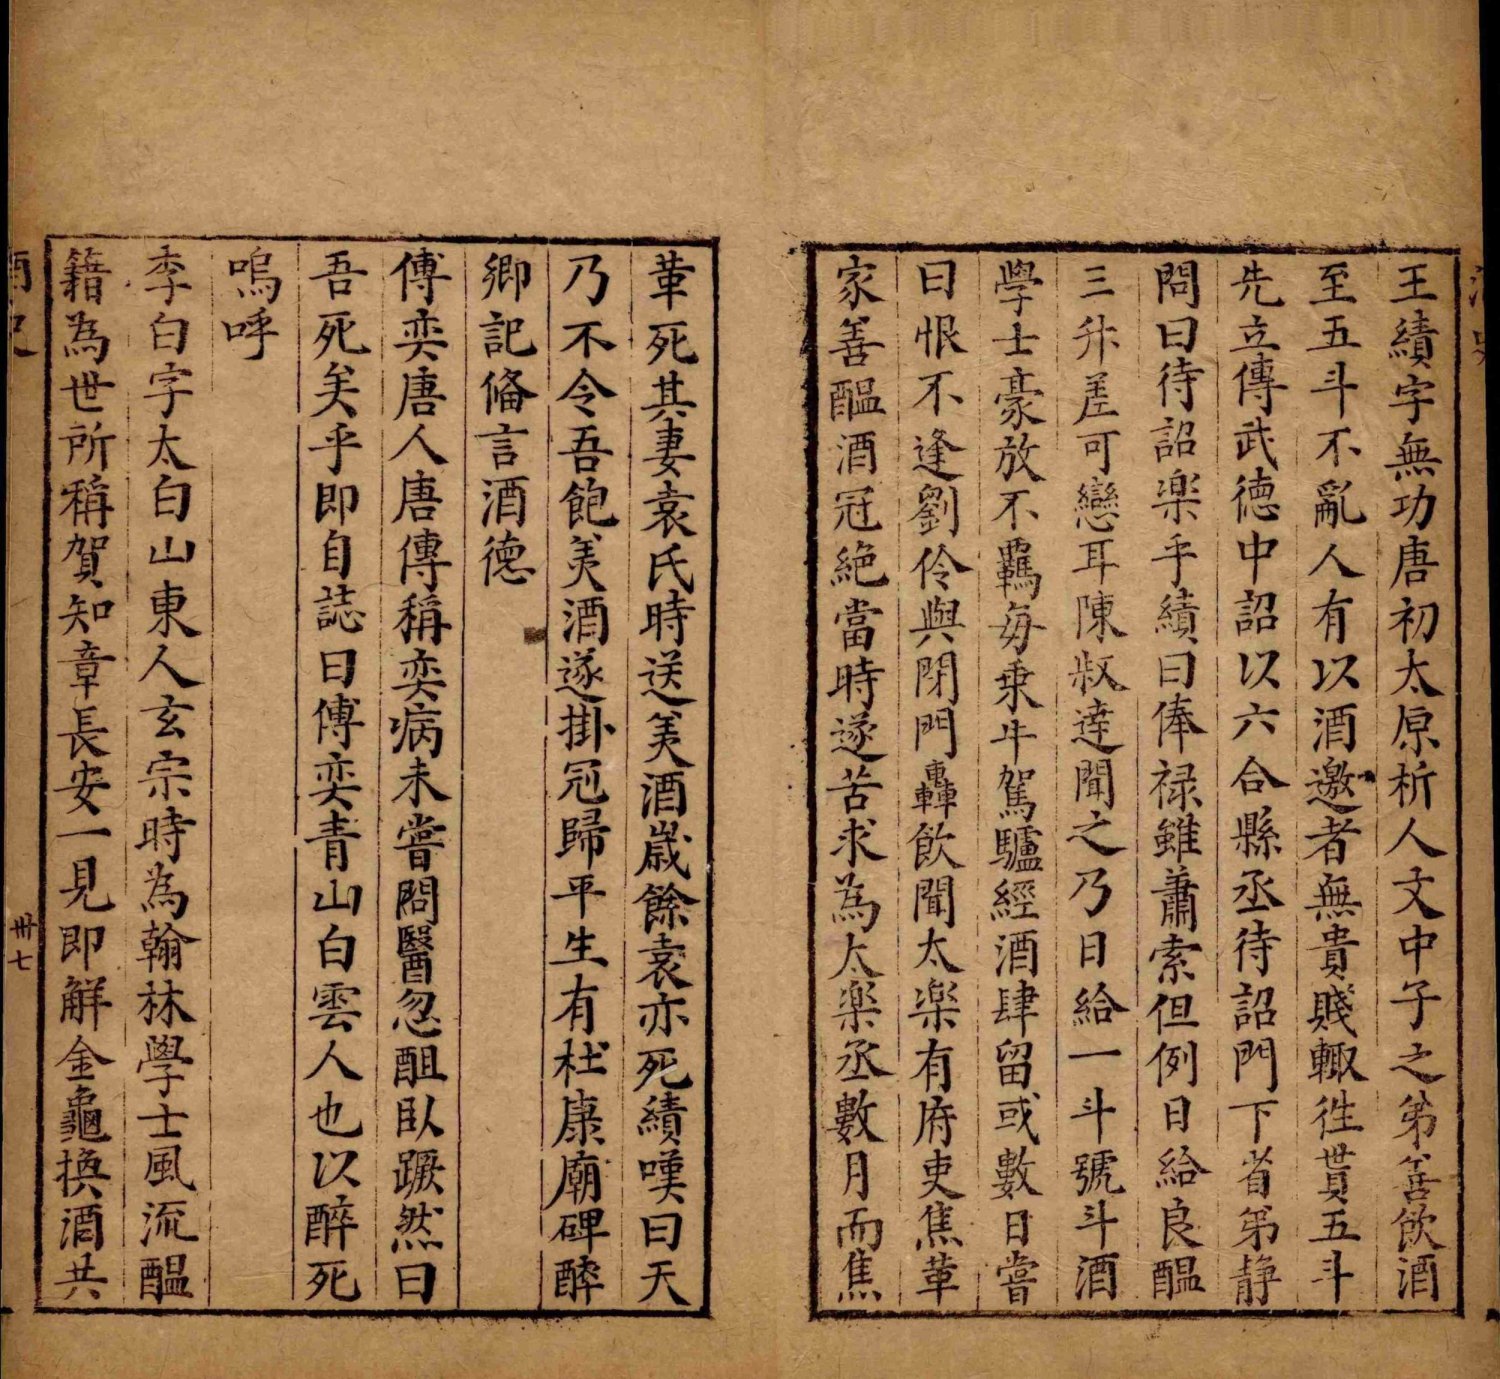 王績字無功唐初太原析人文中子之弟善飲酒
至五斗不亂人有以酒邀者無貴賤輙徃貰五斗
先立傳武德中詔以六合縣丞待詔門下省弟静
問曰待詔楽乎績曰俸禄雖蕭索但例日給良醖
三升差可戀耳陳叔達聞之乃日給一斗號斗酒
學士豪放不羈每乗牛駕驢經酒肆留或數日嘗
曰恨不逢劉伶與閉門轟飲聞太楽有府吏焦革
家善醖酒冠絶當時遂苦求為太楽丞數月而焦
革死其妻袁氏時送美酒嵗餘袁亦死績嘆曰天
乃不令吾飽美酒遂掛冠歸平生有杜康廟碑醉
卿記俻言酒德
傅奕唐人唐傳稱奕病未嘗問醫忽酣臥蹶然曰
吾死矣乎即自誌曰傅奕青山白雲人也以醉死
嗚呼
李白字太白山東人玄宗時為翰林學士風流醖
籍為世所稱賀知章長安一見即解金龜換酒共
酒史
卅七